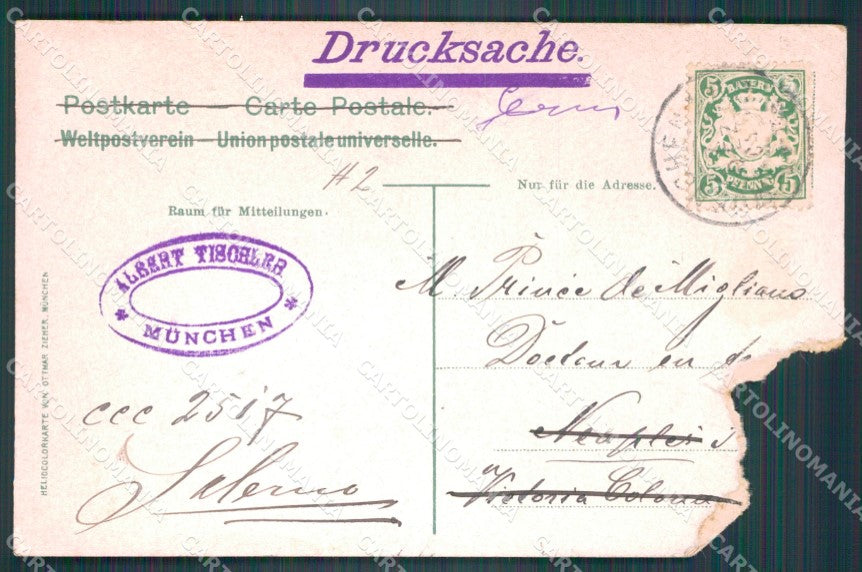 Drucksache.
Postkarte — Carte Postale.
Weltpostverein — Union postale universelle.
#2
Nur für die Adresse.
Raum für Mitteilungen.
BAYERN
5 5
5 PFENNIG 5
ALBERT TISCHLER
* MÜNCHEN *
HELIOCOLORKARTE VON OTTMAR ZIEHER, MÜNCHEN
M. Prince de Migliano
Docteur en d
Neaples
Victoria Colonna
ccc 2517
Salerno
CARTOLINOMANIA